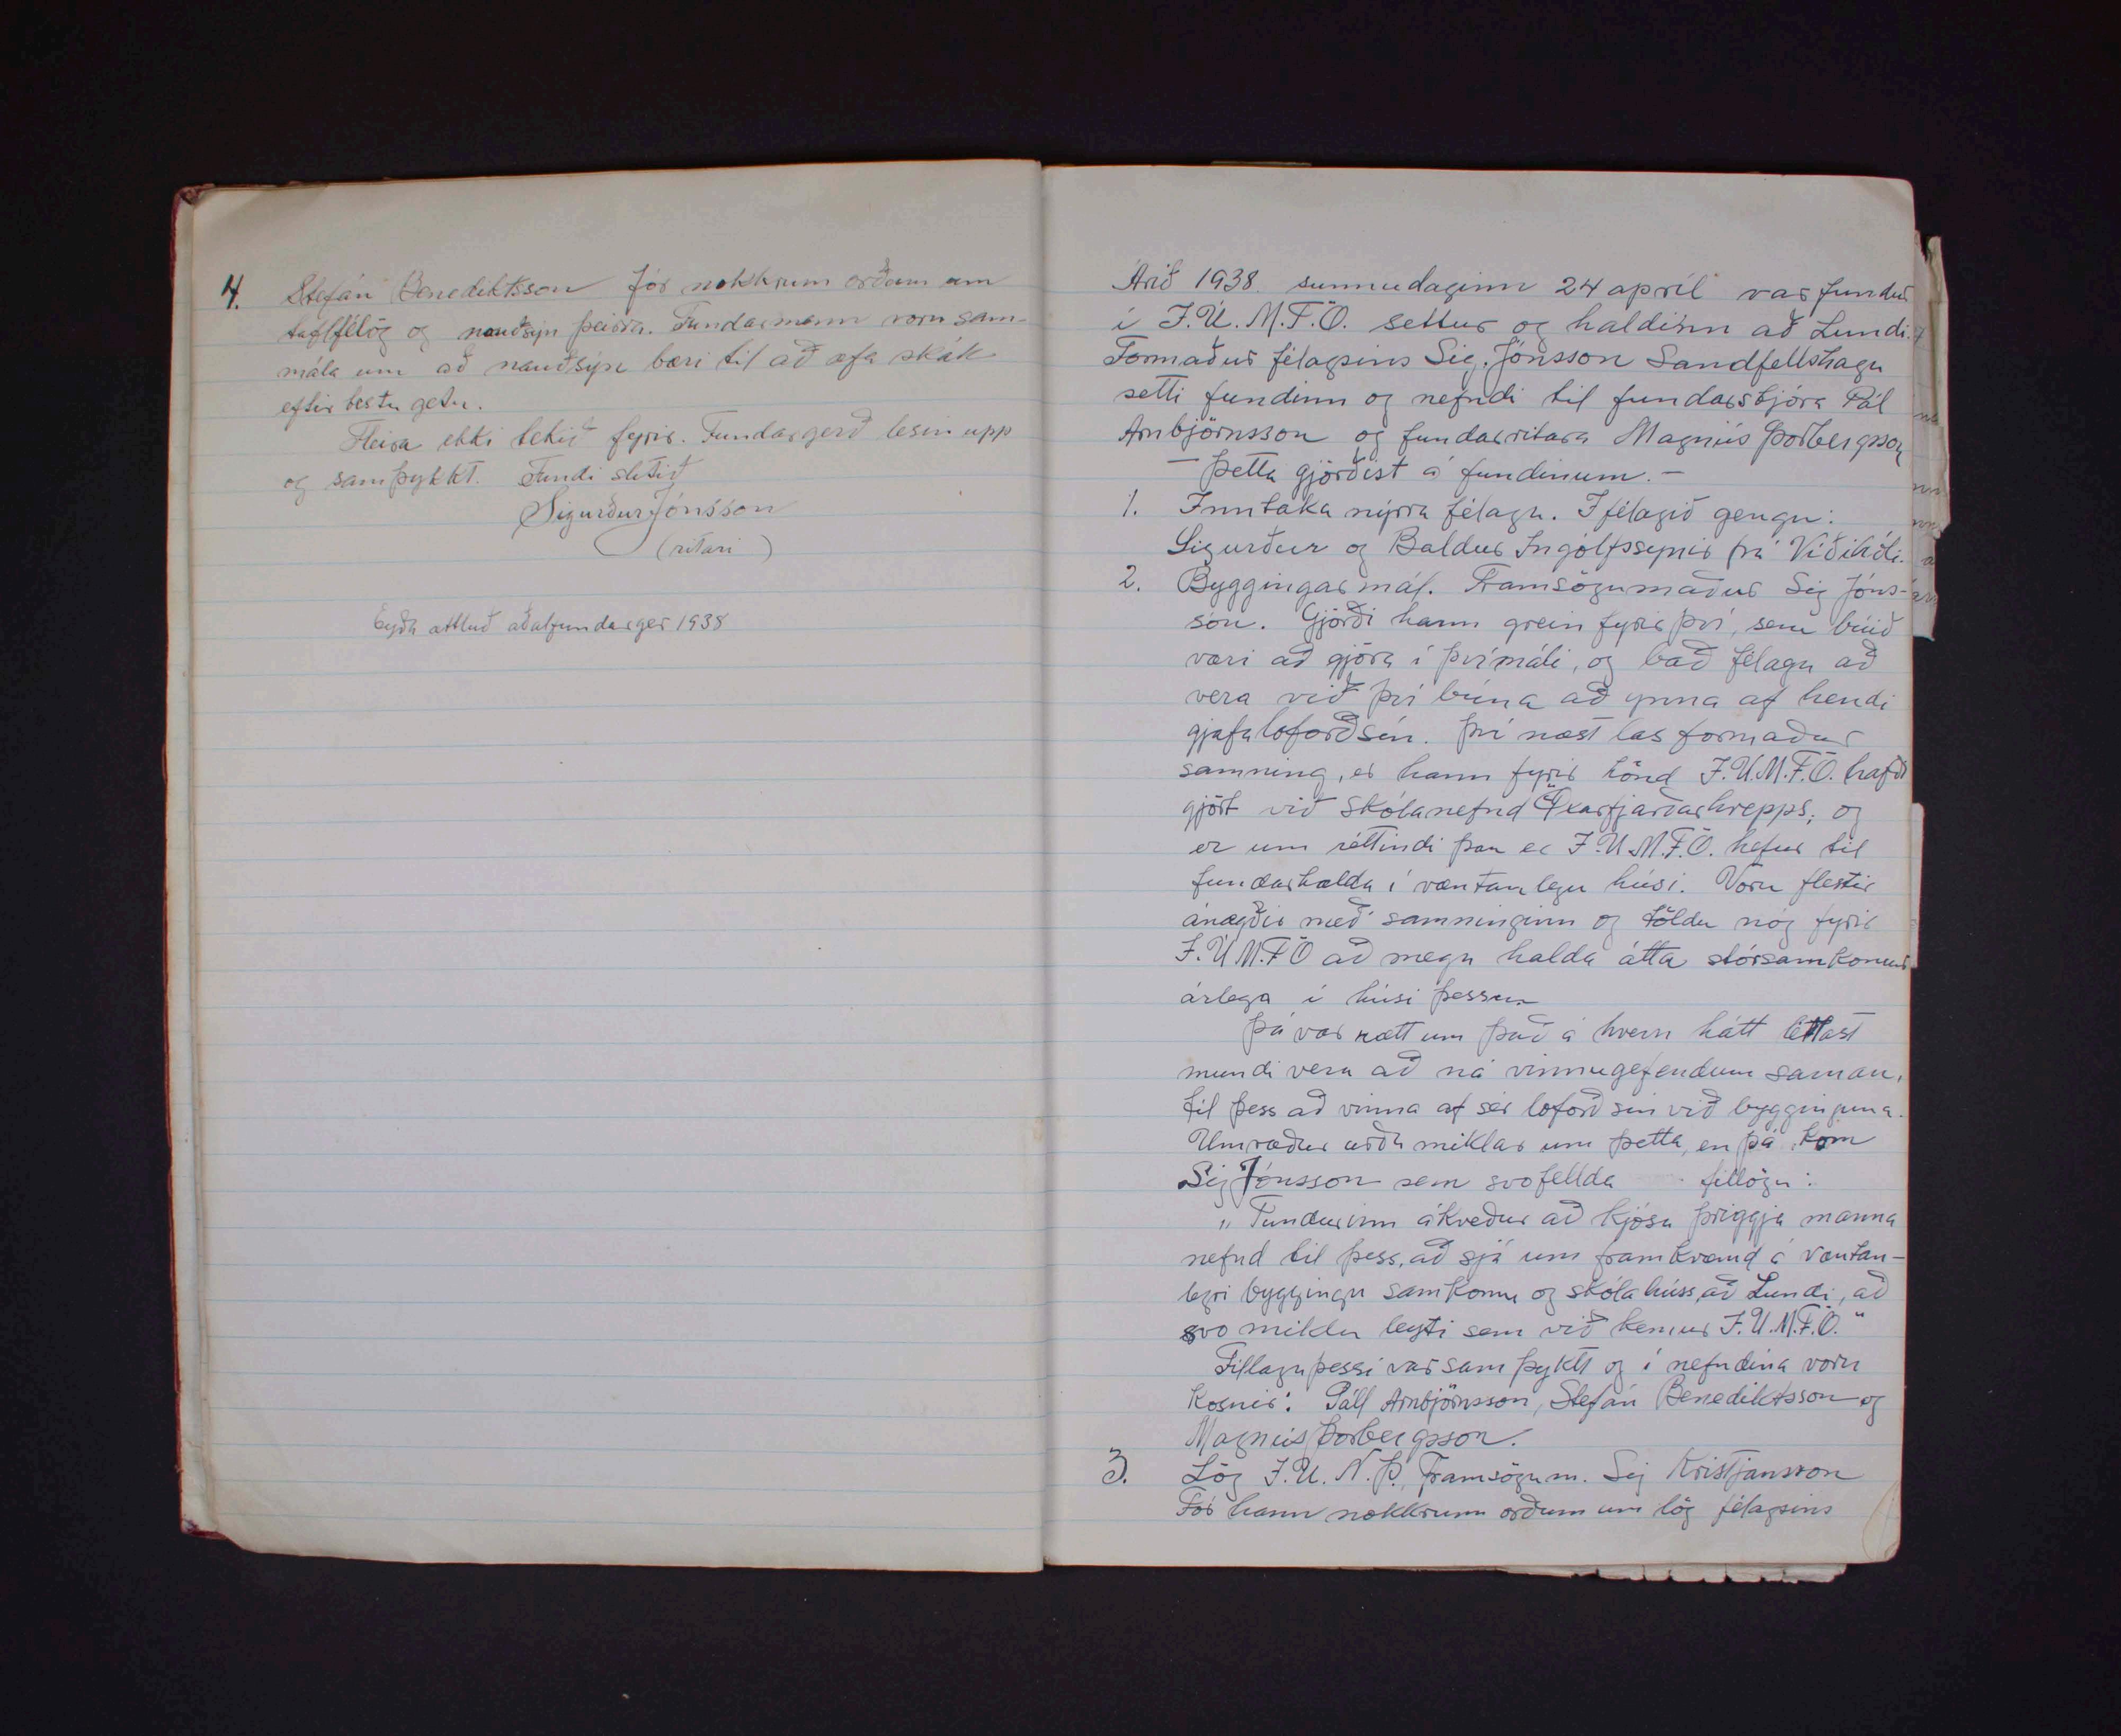 4. Stefán Benediktsson fór nokkrum orðum um
taflfélög og nauðsyn þeirra. Fundarmenn voru sam-
mála um að nauðsyn bæri til að æfa skák
eftir bestu getu.
Fleira ekki tekið fyrir. Fundargerð lesin upp
og samþykkt. Fundi slitið
Sigurður Jónsson
(ritari)
Eyða ætluð aðalfundarger 1938
Árið 1938. sunnudaginn 24 apríl var fundur
í F.U.M.F.Ö. settur og haldinn að Lundi.
Formaður félagsins Sig. Jónsson Sandfellshaga
setti fundinn og nefndi til fundarstjóra Pál
Arnbjörnsson og fundarritara Magnús Þorbergsson
- Þetta gjörðist á fundinum. -
1. Inntaka nýrra félaga. Í félagið gengu:
Sigurður og Baldur Ingólfssynir frá Víðihóli.
2. Byggingarmál. Framsögumaður Sig Jóns-
son. Gjörði hann grein fyrir því, sem búið
væri að gjöra í því máli, og bað félaga að
vera við því búna að ynna af hendi
gjafaloforð sín. Því næst las formaður
samning, er hann fyrir hönd F.U.M.F.Ö. hafði
gjört við skólanefnd Öxarfjarðarhrepps, og
er um réttindi þau er F.U.M.F.Ö. hefur til
fundarhalda í væntanlegu húsi. Voru flestir
ánægðir með samninginn og töldu nóg fyrir
F.U.M.F.Ö að mega halda átta stórsamkomur
árlega í húsi þessu.
Þá var rætt um það á hvern hátt léttast
mundi vera að ná vinnugefendum saman,
til þess að vinna af sér loforð sín við bygginguna.
Umræður urðu miklar um þetta, en þá kom
Sig Jónsson sem svofellda tillögu:
„Fundurinn ákveður að kjósa þriggja manna
nefnd til þess, að sjá um framkvæmd á væntan-
legri byggingu samkomu og skólahúss, að Lundi, að
svo miklu leyti sem við kemur F.U.M.F.Ö."
Tillaga þessi var samþykt og í nefndina voru
kosnir: Páll Arnbjörnsson, Stefán Benediktsson og
Magnús Þorbergsson.
3. Lög F.U.N.Þ., Framsögum. Sig Kristjánsson
Fór hann nokkrum orðum um lög félagsins